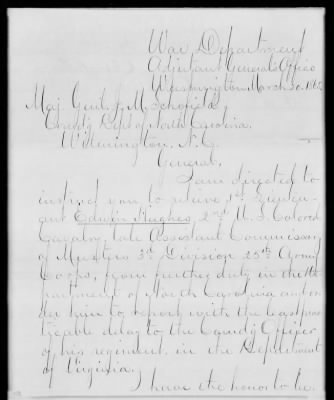 War Department
Adjutant General's Office
Washington March 30. 1865
Maj. Genl. J. M. Schofield
Comd'g Dept of North Carolina.
Wilmington, N.C.
General,
I am directed to
instruct you to relieve 1st Lieuten-
ant Edwin Hughes, 2nd U.S. Colored
Cavalry, late Assistant Commissary
of Musters 3rd Division 25th Army
Corps, from further duty in the De-
partment of North Carolina and or-
der him to report with the least prac-
ticable delay to the Comd'g Officer
of his regiment in the Department
of Virginia.
I have the honor to be,